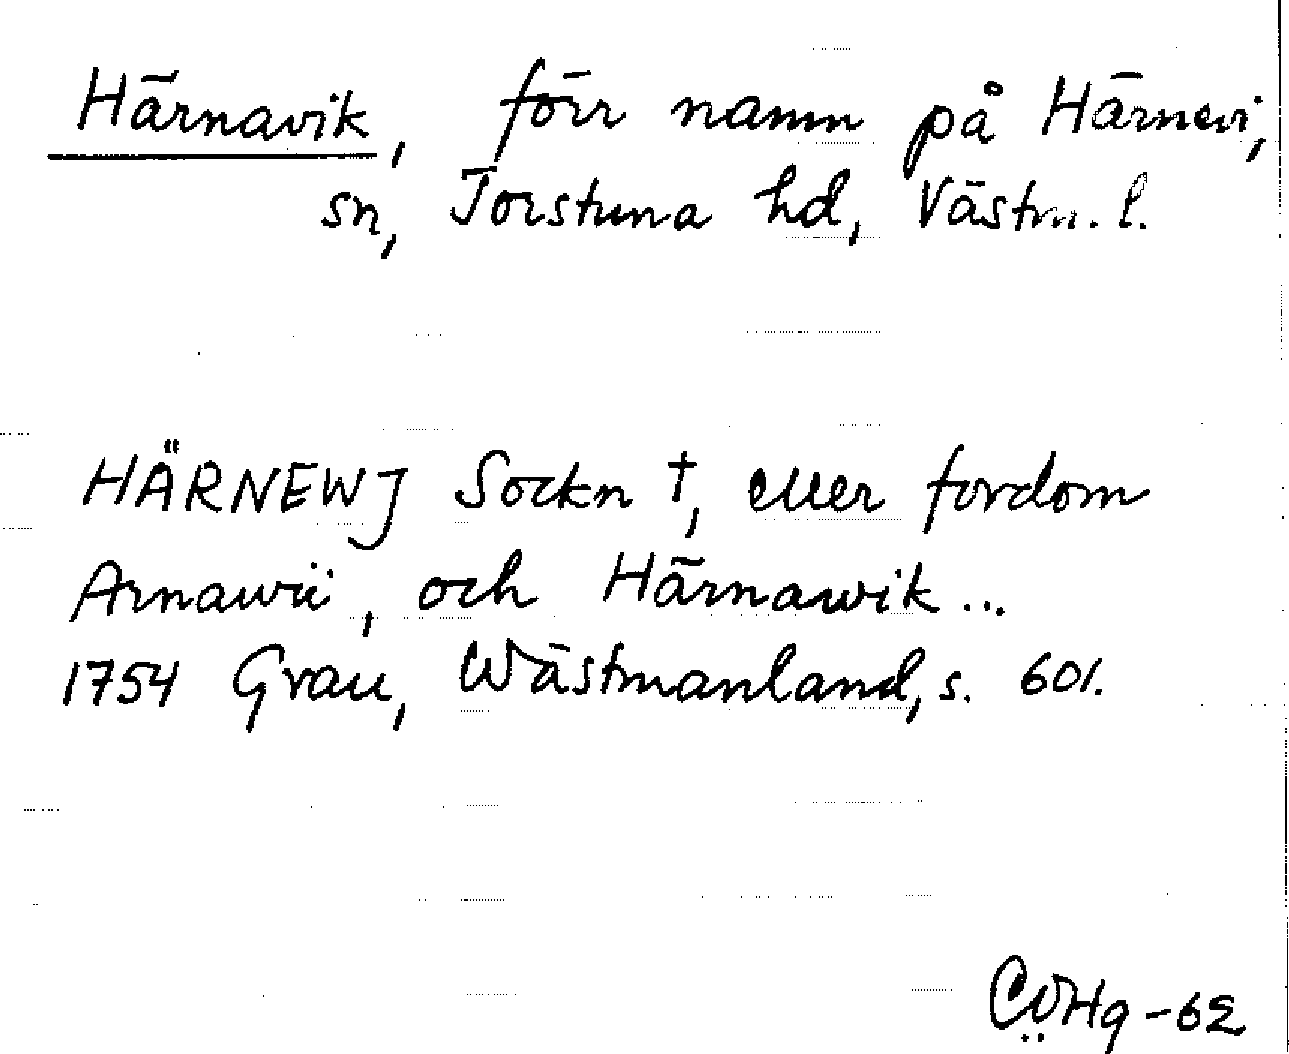 Härnavik, förr namn på Härnevi,
sn, Torstuna hd, Västm. l.
HÄRNEWJ Sockn †, eller fordom
Arnawii, och Härnawik...
1754 Grau, Wästmanland, s. 601.